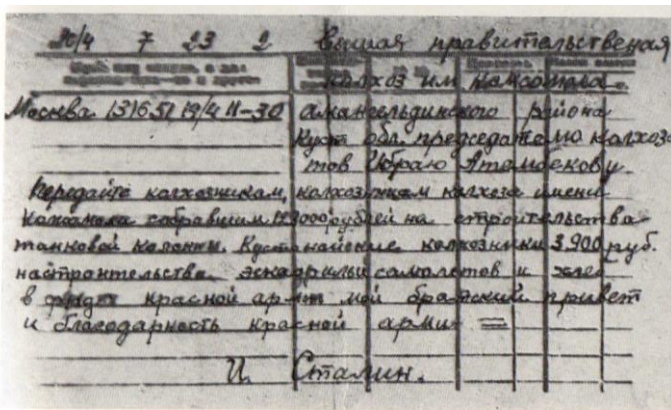 20/4 7 23 2 высшая правительственая
колхоз им
Москва 131651 19/4 11-30 амангельдинского района
Куст обл. председателю колхоза
тов Ибраю Атамбекову
Передайте колхозникам, колхозницам колхоза имени
собравшим 123000 рублей на строительства
танковой колонны. Кустанайские колхозники 3.900 руб.
на строительства эскадрильи самолетов и хлеб
в фонд красной армии мой братский привет
и благодарность красной армии =
И. Сталин.